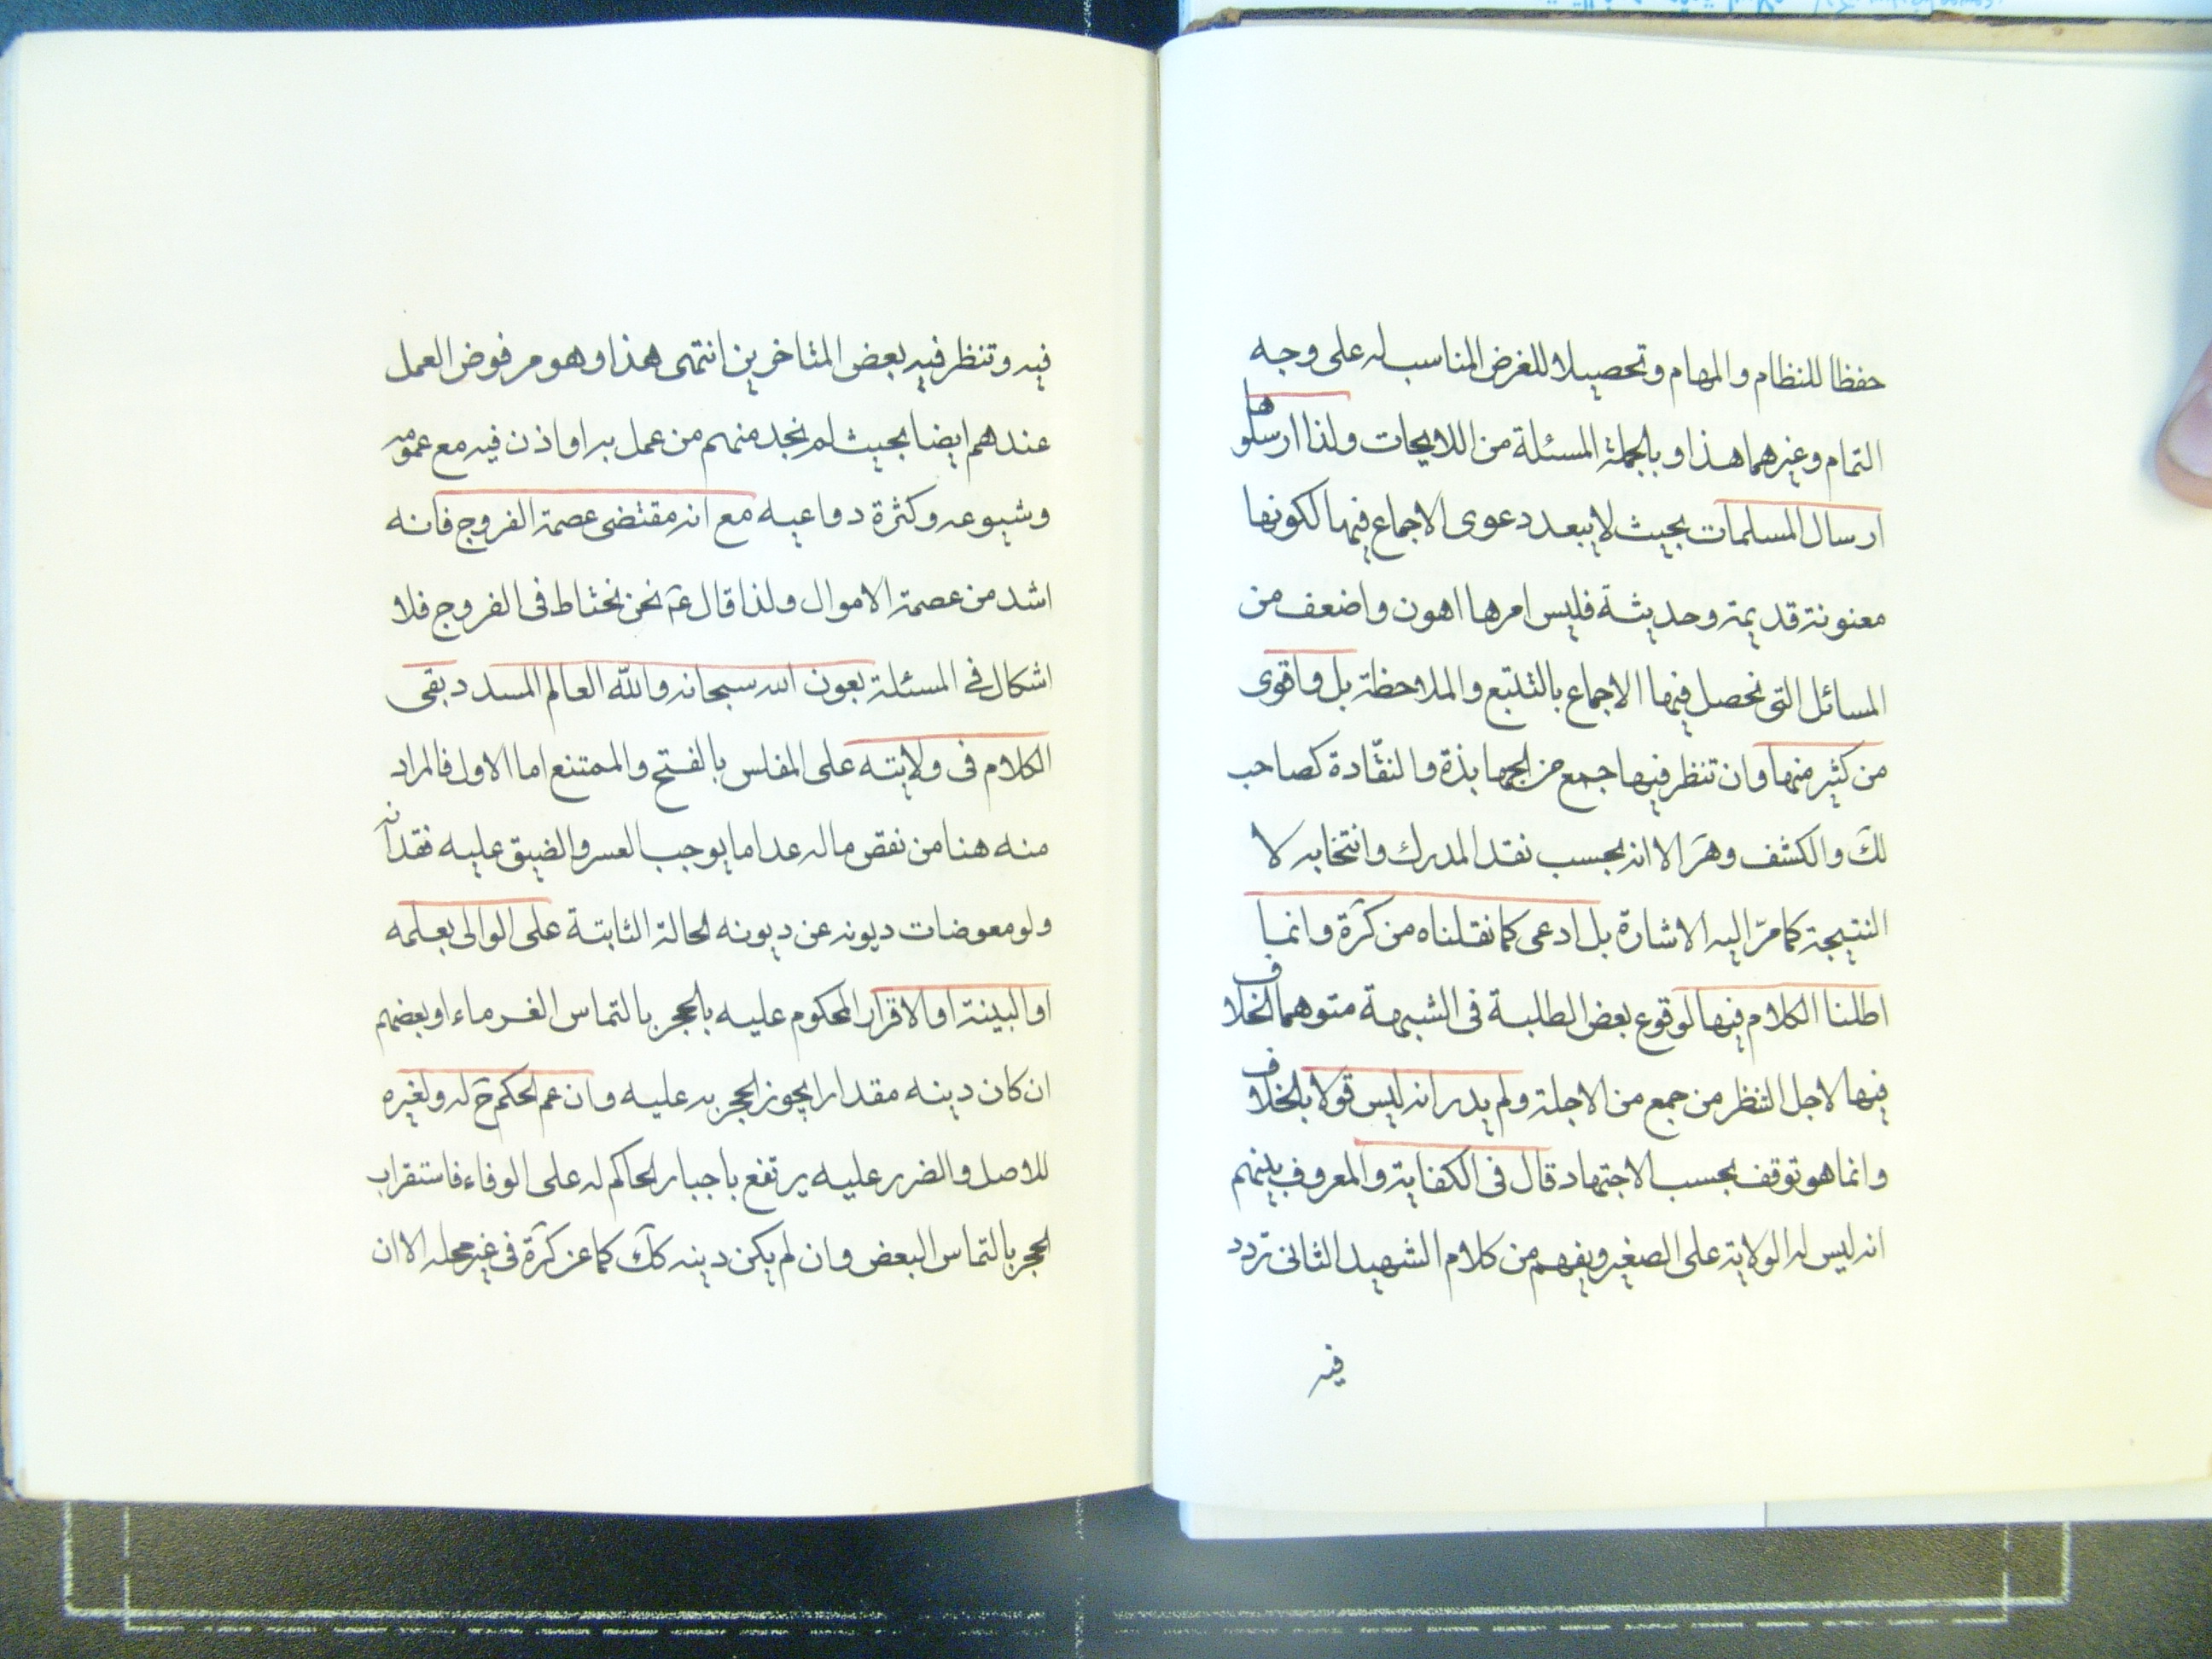 حفظا للنظام والمهام وتحصيلا للغرض المناسب له على وجه
التمام وغيرهما هذا وبالجملة المسئلة من اللايحات ولذا ارسلوها
ارسال المسلمات بحيث لا يبعد دعوى الاجماع فيها لكونها
معنونة قديمة وحديثة فليس امرها اهون واضعف من
المسائل التى نحصل فيها الاجماع بالتتبع والملاحظة بل واقوى
من كثير منها وان تنظر فيها جمع من الجهابذة والنقّادة كصاحب
لك والكشف وهر الا انه بحسب نقد المدرك وانتخابه لا
النتيجة كما مرّ اليه الاشارة بل ادعى كما نقلناه من كرة وانما
اطلنا الكلام فيها لوقوع بعض الطلبة فى الشبهة متوهما الخلاف
فيها لاجل النظر من جمع من الاجلة ولم يدر انه ليس قولا بالخلاف
وانما هو توقف بحسب الاجتهاد قال فى الكفاية والمعروف بينهم
انه ليس له الولاية على الصغير ويفهم من كلام الشهيد الثانى تردد
فيه
فيه وتنظر فيه بعض المتاخرين انتهى هذا وهو مرفوض العمل
عندهم ايضا بحيث لم نجد منهم من عمل به او اذن فيه مع عمومه
وشيوعه وكثرة دواعيه مع انه مقتضى عصمة الفروج فانه
اشد من عصمة الاموال ولذا قال عم نحن نحتاط فى الفروج فلا
اشكال فى المسئلة بعون الله سبحانه والله العالم المسدد بقى
الكلام فى ولايته على المفلس بالفتح والممتنع اما الاول فالمراد
منه هنا من نقص ماله عدا ما يوجب العسر والضيق عليه فقدانه
ولو معوضات ديونه عن ديونه الحالة الثابتة على الوالى بعلمه
او البينة او الاقرار المحكوم عليه بالحجر بالتماس الغرماء او بعضهم
ان كان دينه مقدارا يجوز الحجر به عليه وان عم الحكم ح له ولغيره
للاصل والضرر عليه يرتفع باجبار الحاكم له على الوفاء فاستقراب
الحجر بالتماس البعض وان لم يكن دينه كك كما عن كرة فى غير محله الا ان